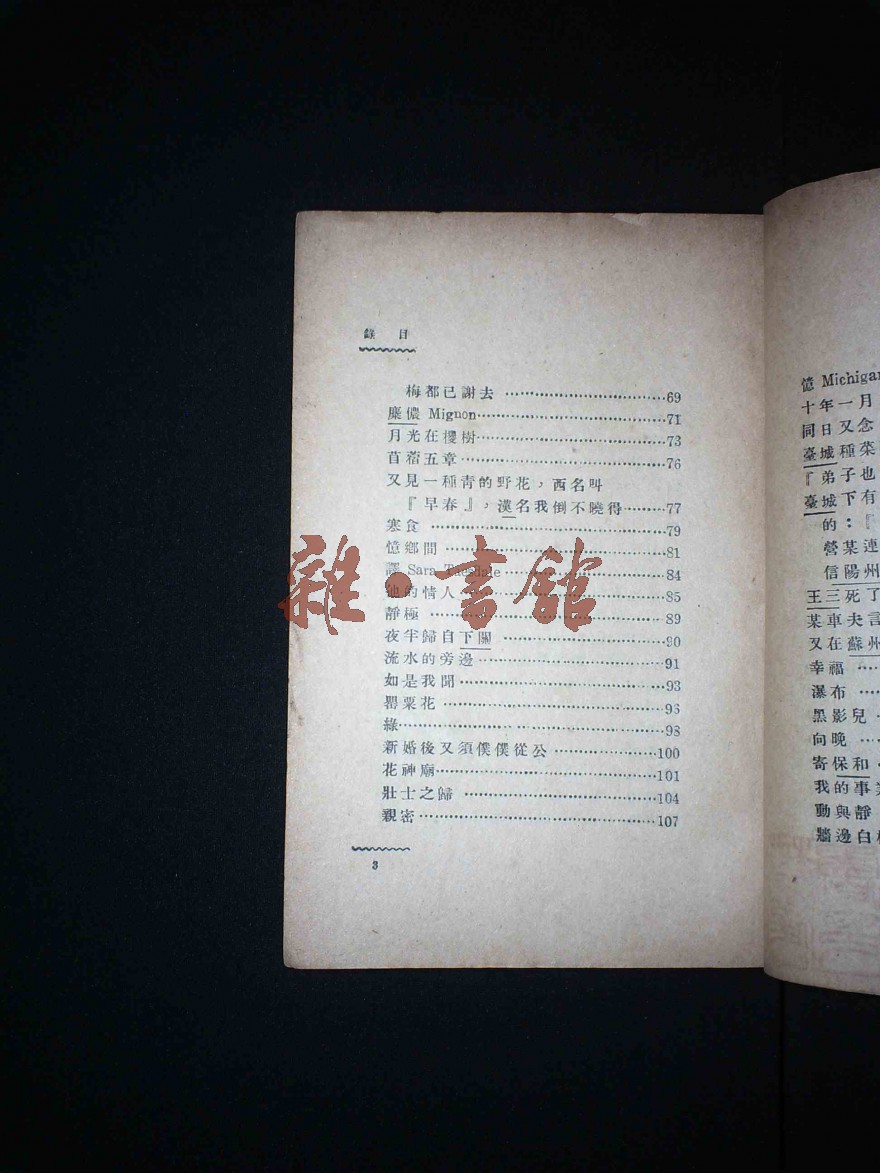 錄 目
梅都已謝去 ……………………69
糜儂 Mignon……………………71
月光在櫻樹……………………73
苜蓿五章……………………76
又見一種青的野花，西名叫
『早春』，漢名我倒不曉得……77
寒食 ……………………79
憶鄉間 ……………………81
譯 Sara Taesdale……………………84
他的情人……………………85
靜極 ……………………89
夜半歸自下關 ……………………90
流水的旁邊……………………91
如是我聞……………………93
罌粟花……………………96
綠……………………98
新婚後又須僕僕從公 …………100
花神廟……………………101
壯士之歸 ……………………104
親密……………………107
3
雜·書館
憶 Michigan
十年一月
同日又念
臺城種菜
『弟子也
臺城下有
的：『
營某連
信陽州
王三死了
某車夫言
又在蘇州
幸福 ……
瀑布 ……
黑影兒 …
向晚 ……
寄保和 …
我的事業
動與靜
牆邊白